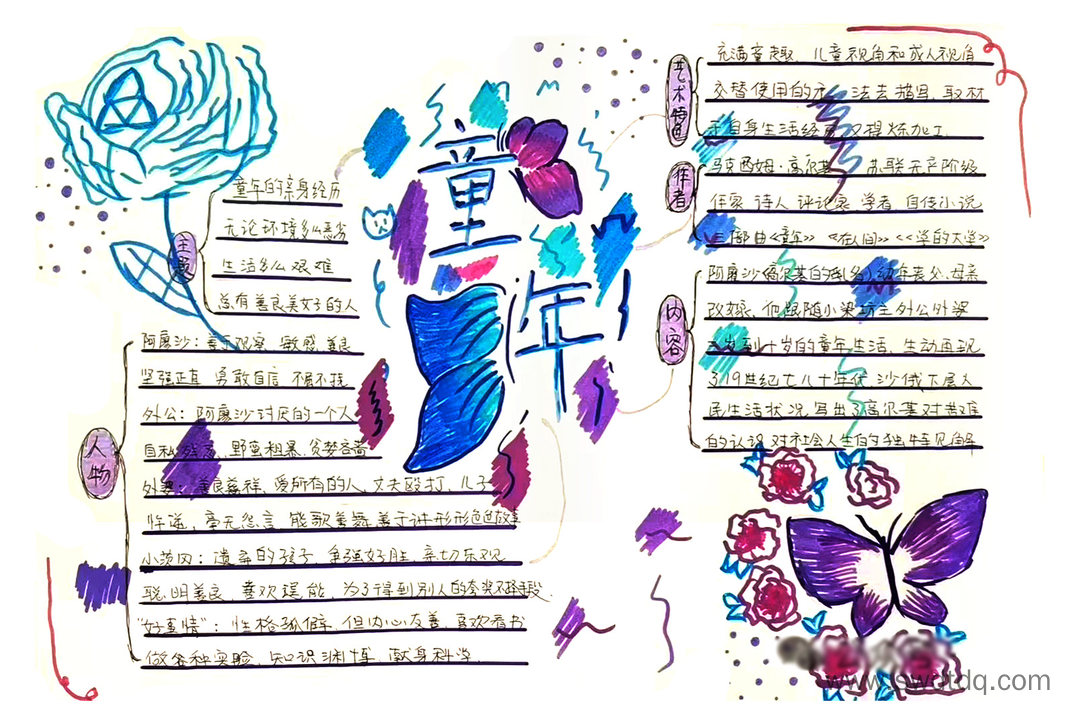 童年
主题
童年的亲身经历
无论环境多么恶劣
生活多么艰难
总有善良美好的人
人物
阿廖沙：善于观察 敏感 善良
坚强正直 勇敢自信 不屈不挠
外公：阿廖沙讨厌的一个人
自私残 野蛮粗暴 贪婪吝啬
外婆：善良慈祥、爱所有的人、丈夫殴打、儿子
忤逆，毫无怨言 能歌善舞 善于讲形形色色故事
小茨冈：遗弃的孩子 争强好胜 亲切乐观
聪明善良、喜欢逞能，为了得到别人的夸奖不择手段.
"好事情"：性格孤僻 但内心友善 喜欢看书
做各种实验 知识渊博 献身科学
艺术特色
充满童趣 儿童视角和成人视角
交替使用的 法去描写 取材
于自身生活经 又提炼加工
作者
马克西姆·高尔基 苏联无产阶级
作家 诗人 评论家 学者 自传小说
三部曲《童年》《在人间》《我的大学》
内容
阿廖沙(高尔基的乳名)幼年丧父、母亲
改嫁、他跟随小染坊主外公外婆
岁到十岁的童年生活 生动再现
了19世纪七八十年代 沙俄下层人
民生活状况 写出了高尔基对苦难
的认识 对社会人生的独特见解